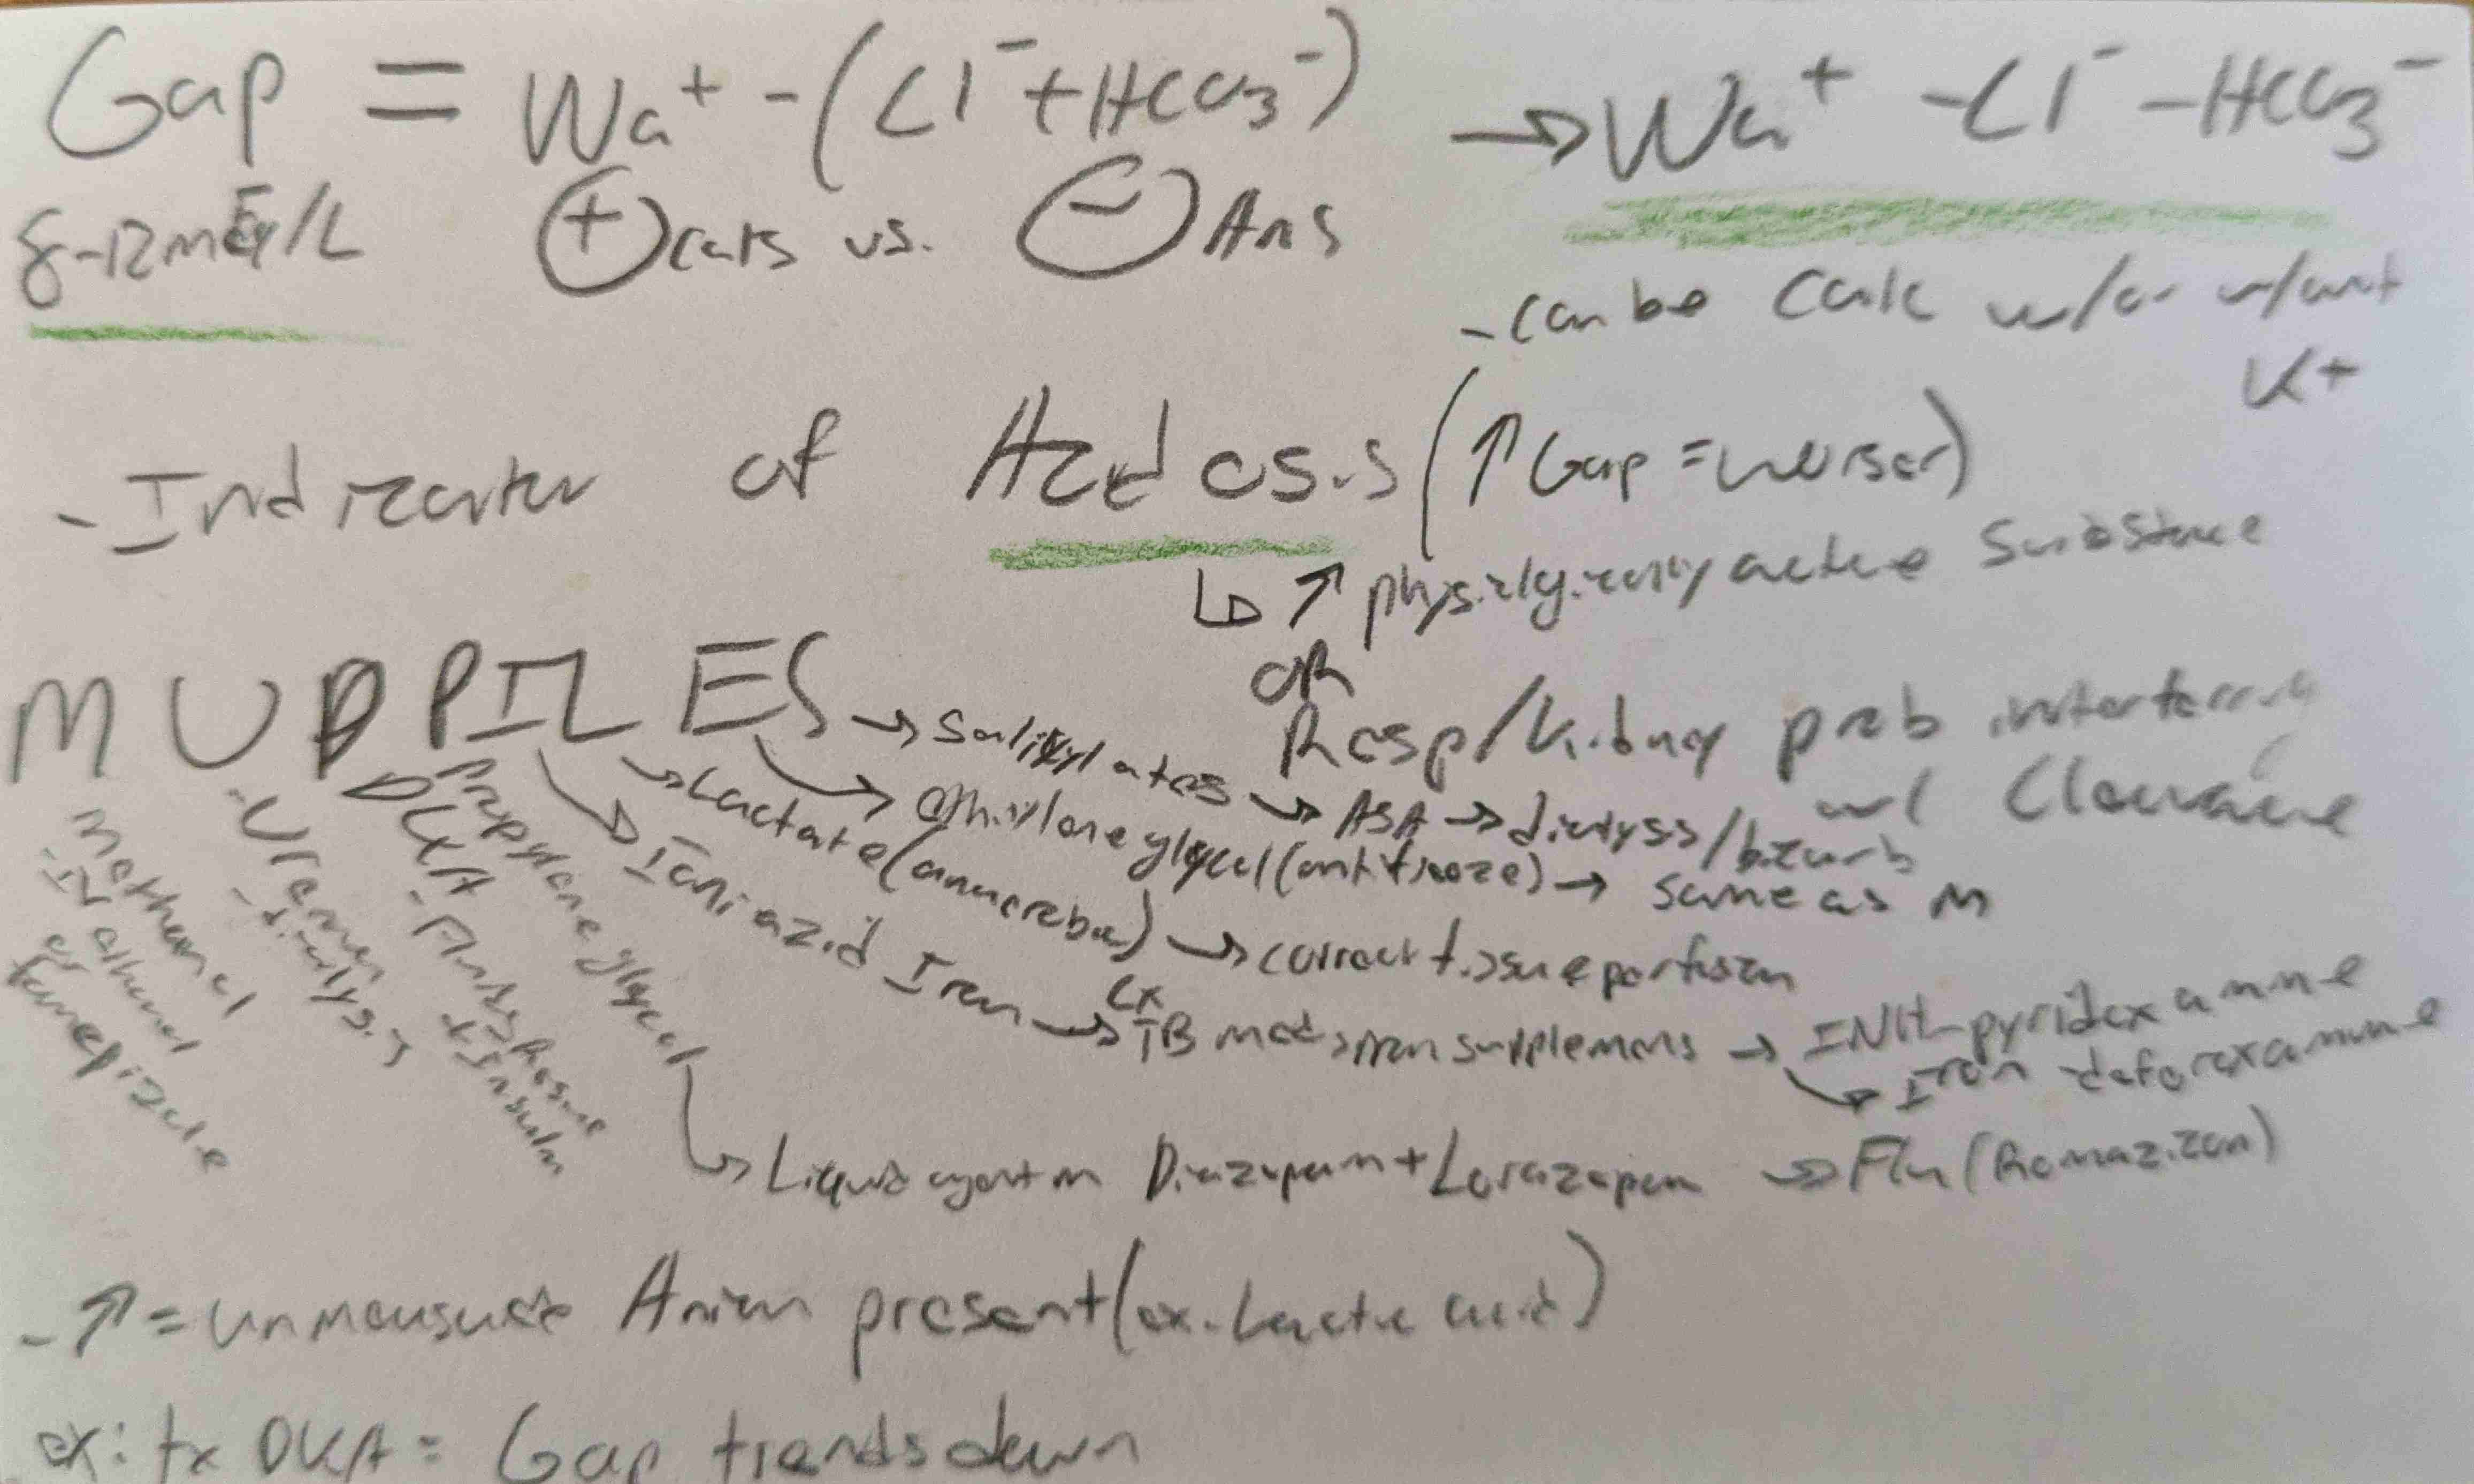 Gap = Na⁺ - (Cl⁻ + HCO₃⁻) → Na⁺ - Cl⁻ - HCO₃⁻
8-12 mEq/L ⊕ cats vs. ⊖ Ans
- can be calc w/ or w/out
K+
- Indicator of Acidosis (↑ Gap = worser)
↳ ↑ physiologically active substance
OR
Resp/Kidney prob interfering
w/ Clearance
MUDPILES
Methanol
- IV ethanol
or fomepizole
- Uremia
- dialysis
DKA
- Fluids
+ Insulin
Propylene glycol
→ Liquid agent in Diazepam + Lorazepam → Flu (Romazicon)
Isoniazid Iron → ex TB med, iron supplements → INH - pyridoxamine
↳ Iron - deferoxamine
→ Lactate (anaerobic) → correct tissue perfusion
→ ethylene glycol (antifreeze) → same as M
→ Salicylates → ASA → dialysis/bicarb
- ↑ = unmeasured Anion present (ex. Lactic acid)
ex: tx DKA = Gap trends down